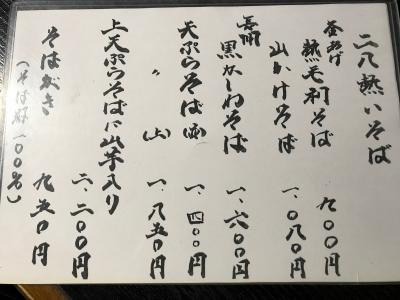 二八熱いそば
釜あげ
熱もりそば 九〇〇円
山かけそば 一、〇八〇円
長州
黒かしわそば 一、六〇〇円
天ぷらそば 一、四〇〇円
〃 (上) 一、八五〇円
上天ぷらそばに山芋入り
二、二〇〇円
そばがき 九五〇円
(そば粉一〇〇%)